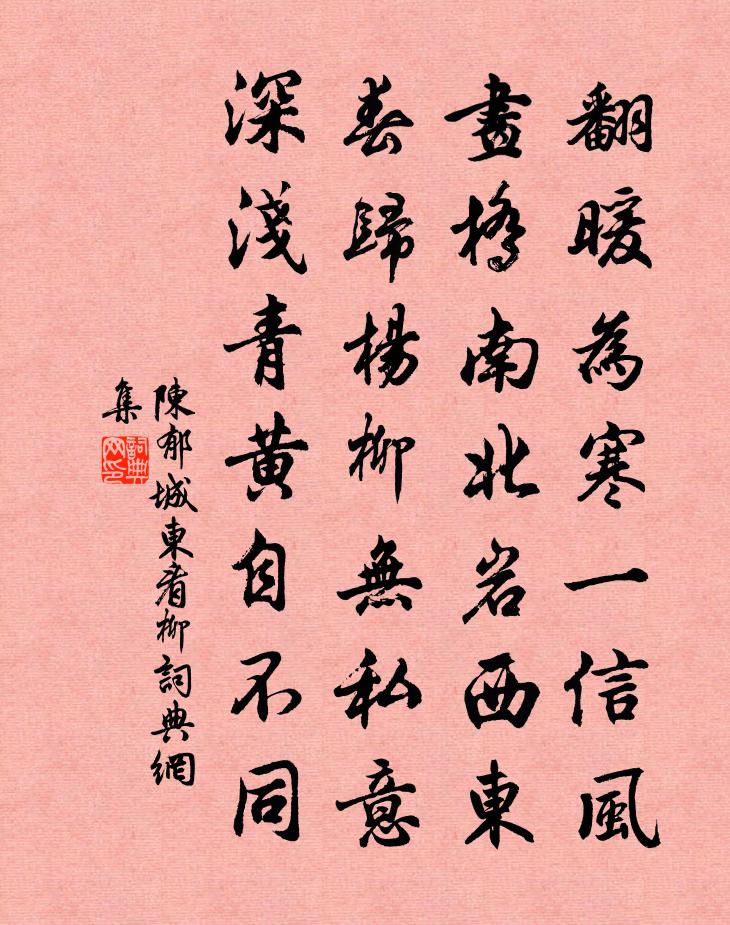 翻暖為寒一信風
畫橋南北岩西東
春歸楊柳無私意
深淺青黃自不同
陳郁城東看柳詞典網
集
詞典
网印